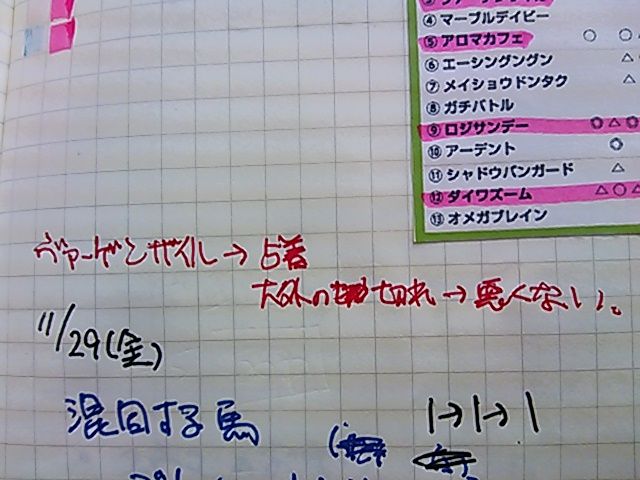 ④ マーブルデイビー
⑤ アロマカフェ ○ ○
⑥ エーシングングン △
⑦ メイショウドンタク △
⑧ ガチバトル
⑨ ロジサンデー ◎ △ ◎
⑩ アーデント ◎
⑪ シャドウバンガード △
⑫ ダイワズーム △ ○ △
⑬ オメガブレイン
ヴァーゲンザイル→5着
大外の 切れ→悪くない。
11/29(金)
混同する馬
1→1→1